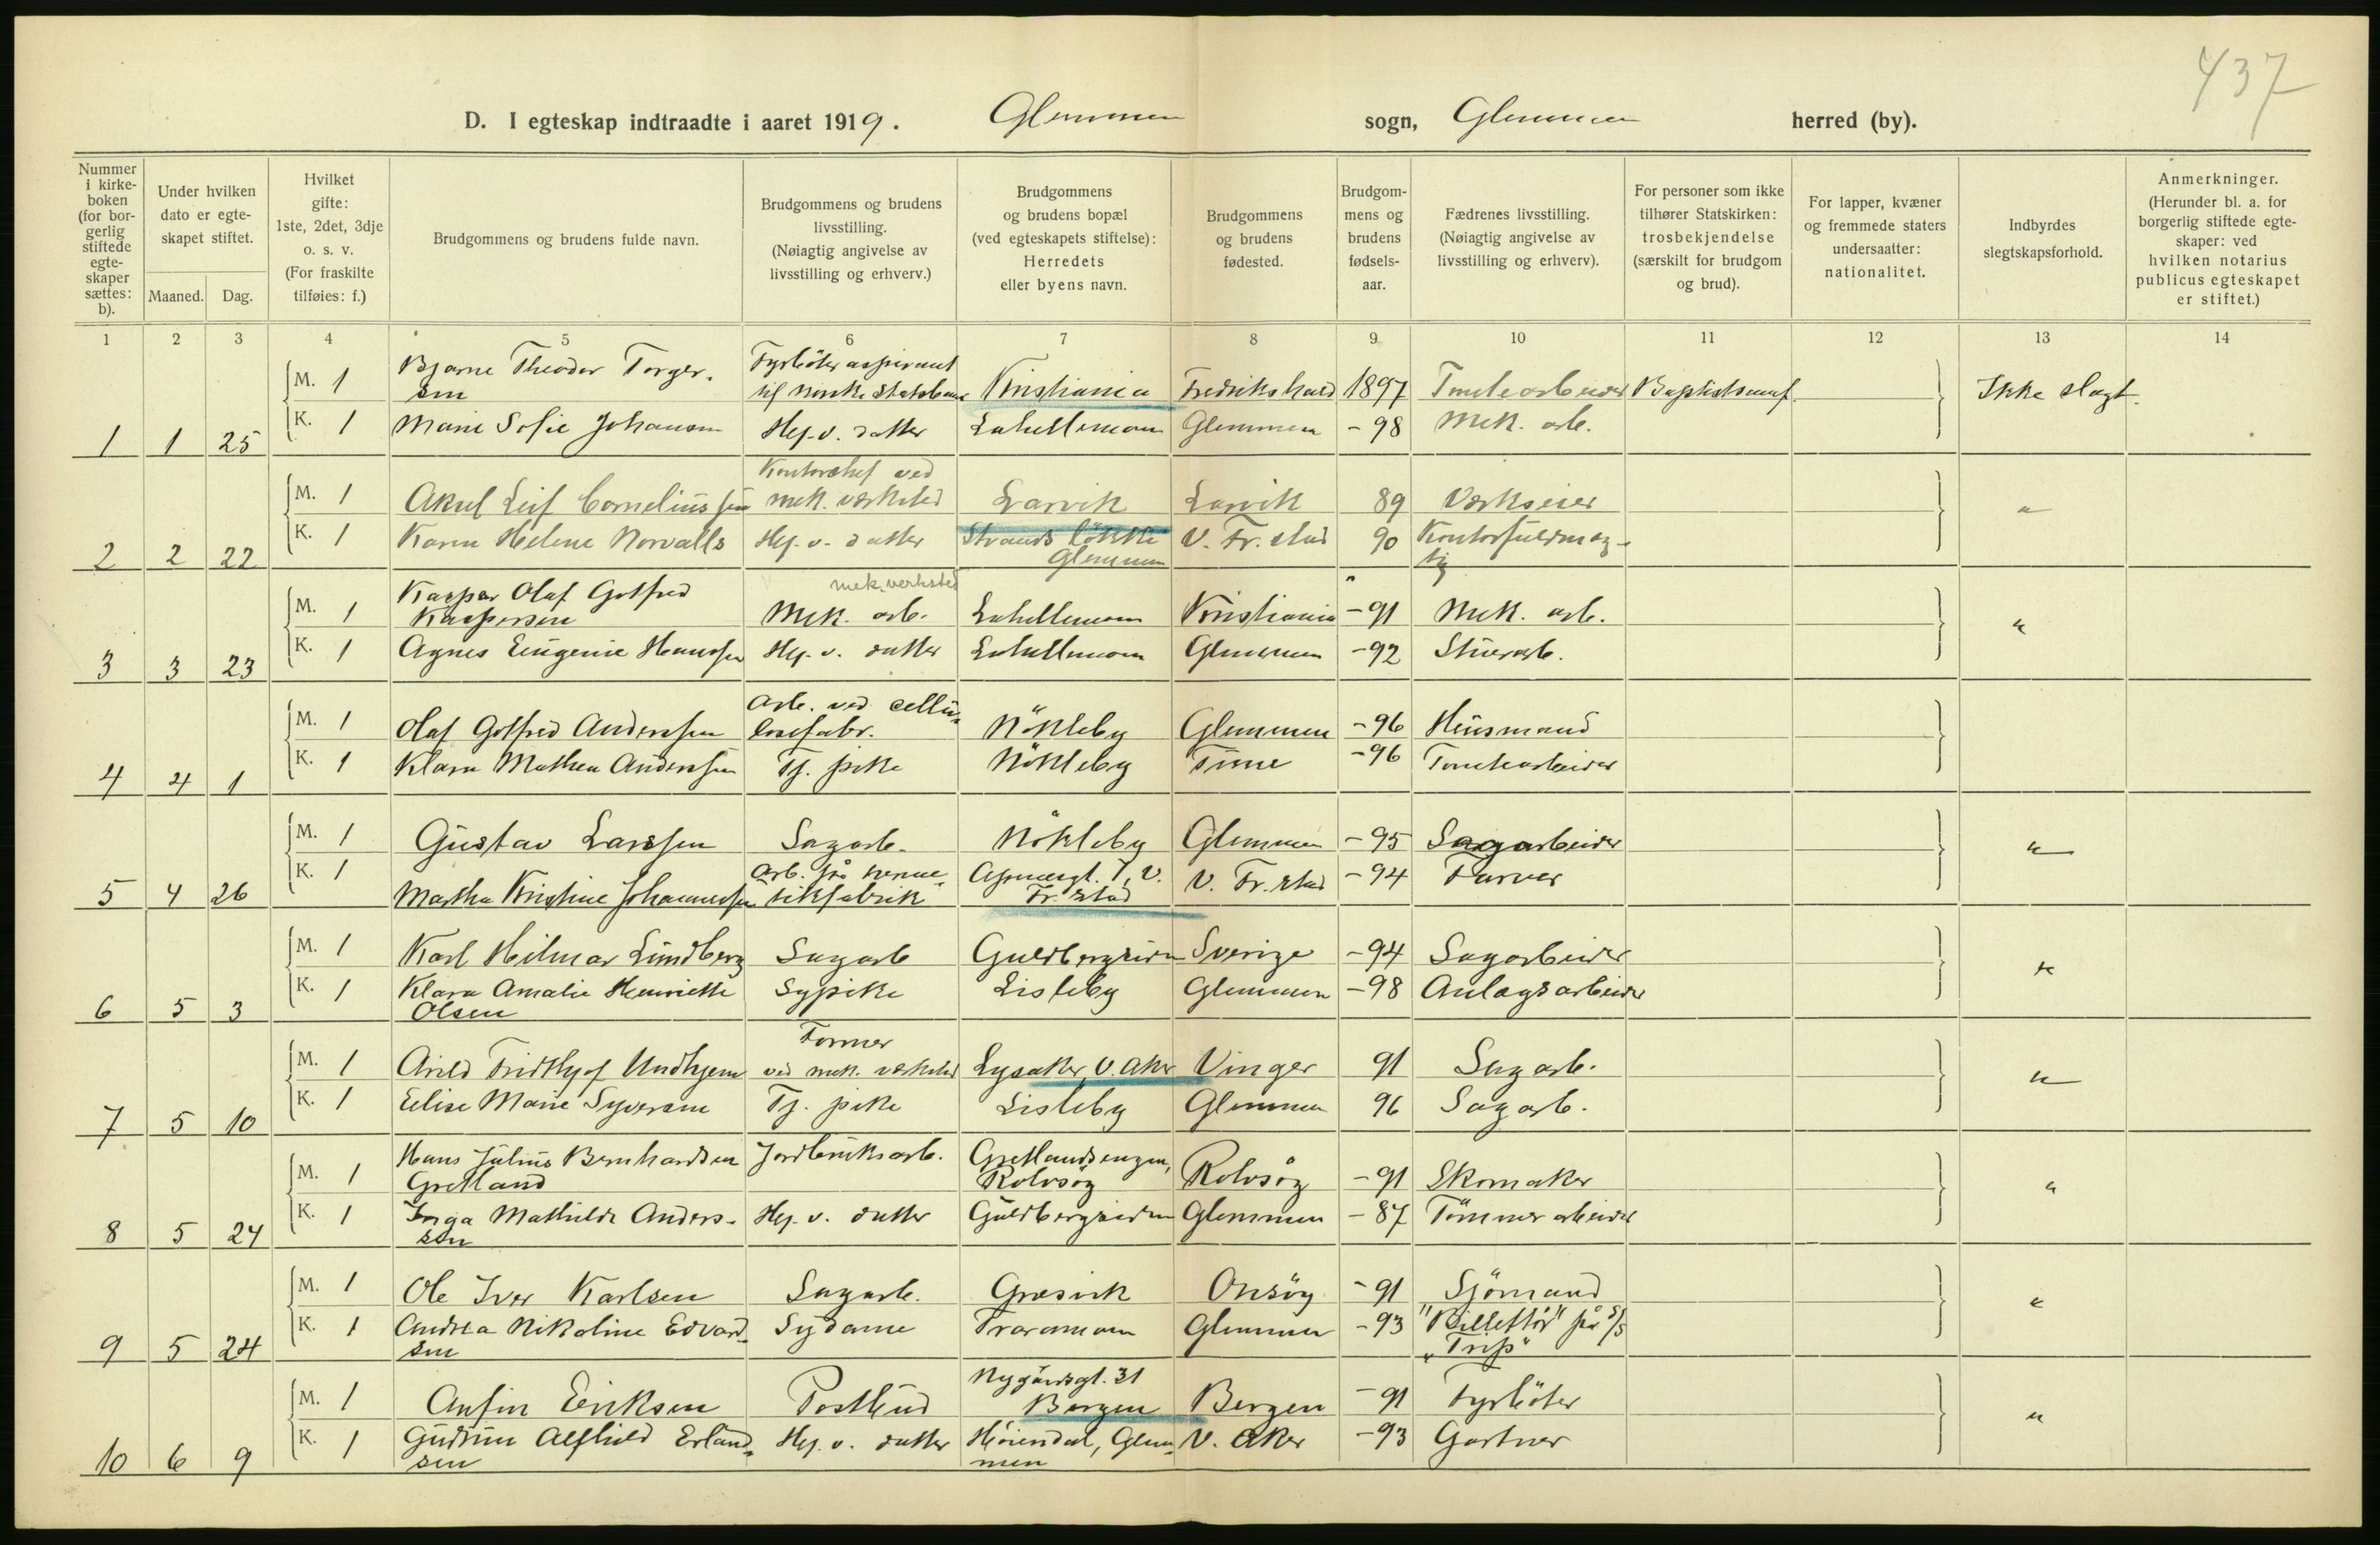 437
D. I egteskap indtraadte i aaret 1919. Glemmen sogn, Glemmen herred (by).
Nummer i kirke- boken (for bor- gerlig stiftede egte- skaper sættes: b).
Under hvilken dato er egte- skapet stiftet.
Maaned. Dag.
Hvilket gifte: 1ste, 2det, 3dje o. s. v. (For fraskilte tilføies: f.)
Brudgommens og brudens fulde navn.
Brudgommens og brudens livsstilling. (Nøiagtig angivelse av livsstilling og erhverv.)
Brudgommens og brudens bopæl (ved egteskapets stiftelse): Herredets eller byens navn.
Brudgommens og brudens fødested.
Brudgom- mens og brudens fødsels- aar.
Fædrenes livsstilling. (Nøiagtig angivelse av livsstilling og erhverv).
For personer som ikke tilhører Statskirken: trosbekjendelse (særskilt for brudgom og brud).
For lapper, kvæner og fremmede staters undersaatter: nationalitet.
Indbyrdes slegtskapsforhold.
Anmerkninger. (Herunder bl. a. for borgerlig stiftede egte- skaper: ved hvilken notarius publicus egteskapet er stiftet.)
1 2 3 4 5 6 7 8 9 10 11 12 13 14
M. 1 Bjarne Theodor Torger- sen Fyrbøteraspirant til norske statsbaner Kristiania Fredrikshald 1897 Tomtearbeider Baptistsamf. Ikke slegt.
1 1 25 K. 1 Marie Sofie Johansen Hj. v. datter Lahellemoen Glemmen - 98 Mek. arb.
M. 1 Aksel Leif Corneliussen Kontorchef ved mek. værksted Larvik Larvik 89 Verkseier "
2 2 22 K. 1 Karen Helene Norvalls Hj. v. datter Strands løkke Glemmen V. Fr. stad 90 Kontorfuldmæg- tig
M. 1 Kasper Olaf Gotfred Kaspersen mek. verksted Mek. arb. Lahellemoen Kristiania - 91 Mek. arb. "
3 3 23 K. 1 Agnes Eugenie Hanssen Hj. v. datter Lahellemoen Glemmen - 92 Stuerarb.
M. 1 Olaf Gotfred Anderssen Arb. ved cellu- losefabr. Nökleby Glemmen - 96 Husmand
4 4 1 K. 1 Klara Mathea Anderssen Tj. pike Nökleby Tune - 96 Tomtearbeider
M. 1 Gustav Larssen Sagarb. Nökleby Glemmen - 95 Sagarbeider "
5 4 26 K. 1 Martha Kristine Johannessen Arb. på herme- tikfabrik V. Fr. stad V. Fr. stad - 94 Farver
M. 1 Karl Hilmar Lundberg Sagarb Guldbergsiden Sverige - 94 Sagarbeider "
6 5 3 K. 1 Klara Amalie Henriette Olsen Sypike Lisleby Glemmen - 98 Anlægsarbeider
M. 1 Arild Fridthjof Undhjem Former ved mek. værksted Lysaker, V. Aker Vinger 91 Sagarb. "
7 5 10 K. 1 Elise Marie Syversen Tj. pike Lisleby Glemmen 96 Sagarb.
M. 1 Hans Julius Bernhardsen Gretland Jordbruksarb. Gretlandsengen, Rolvsøy Rolvsøy - 91 Skomaker "
8 5 24 K. 1 Inga Mathilde Anders- sen Hj. v. datter Guldbergsiden Glemmen - 87 Tømmerarbeider
M. 1 Ole Iver Karlsen Sagarb. Græsvik Onsøy - 91 Sjömand "
9 5 24 K. 1 Andrea Nikoline Edvard- sen Sydame Traramoen Glemmen - 93 "Billettør" på S/S "Trip"
M. 1 Anfin Eriksen Postbud Nygårdsgt. 31 Bergen Bergen - 91 Fyrböter "
10 6 9 K. 1 Gudrun Alfhild Erland- sen Hj. v. datter Høiendal, Glem- men V. Aker - 93 Gartner